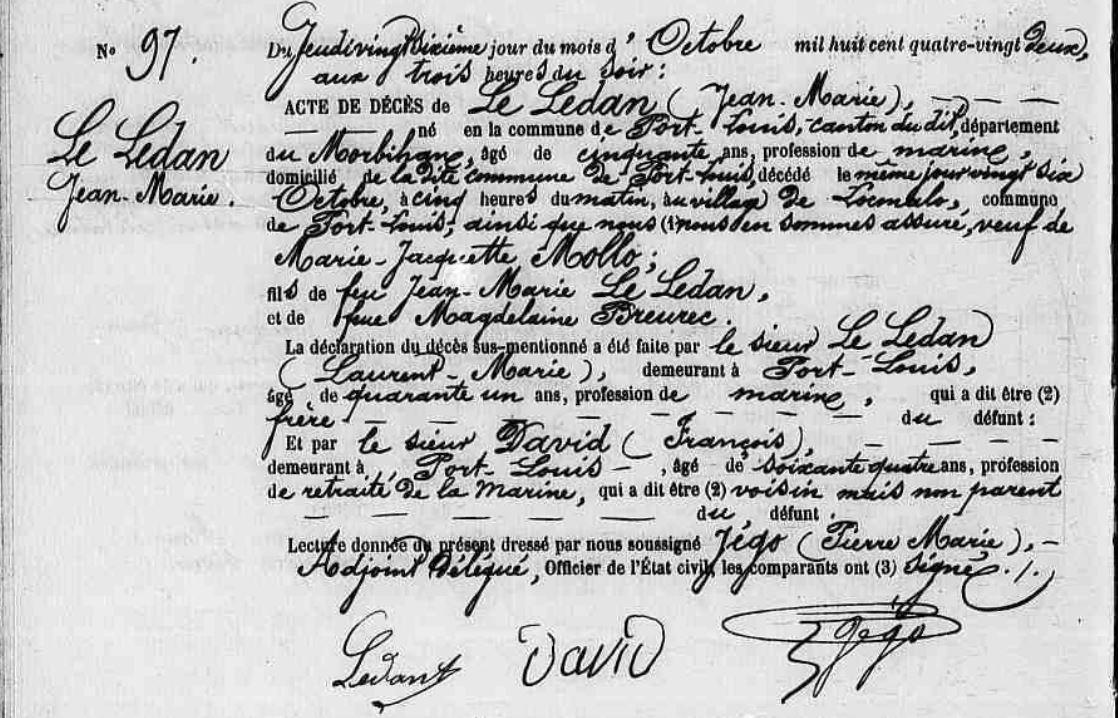 N° 97.
Du Jeudi vingt sixième jour du mois d'Octobre mil huit cent quatre-vingt deux,
aux trois heures du soir :
ACTE DE DÉCÈS de Le Lédan (Jean-Marie),
né en la commune de Port-Louis, canton du dit, département
Le Lédan
du Morbihan, âgé de cinquante ans, profession de marine,
domicilié de la dite commune de Port-Louis, décédé le même jour vingt six
Jean-Marie.
Octobre, à cinq heures du matin, au village de Locmalo, commune
de Port-Louis, ainsi que nous (1) nous en sommes assuré, veuf de
Marie-Jacquette Mollo ;
fils de feu Jean-Marie Le Lédan,
et de feue Magdelaine Breurec.
La déclaration du décès sus-mentionné a été faite par le sieur Le Lédan
(Laurent-Marie), demeurant à Port-Louis,
âgé de quarante un ans, profession de marine, qui a dit être (2)
frère du défunt :
Et par le sieur David (François),
demeurant à Port-Louis, âgé de soixante quatre ans, profession
de retraité de la Marine, qui a dit être (2) voisin mais non parent
du défunt.
Lecture donnée du présent dressé par nous soussigné Jégo (Pierre Marie),
Adjoint Délégué, Officier de l'État civil, les comparants ont (3) signé ./.
Ledant David Jégo